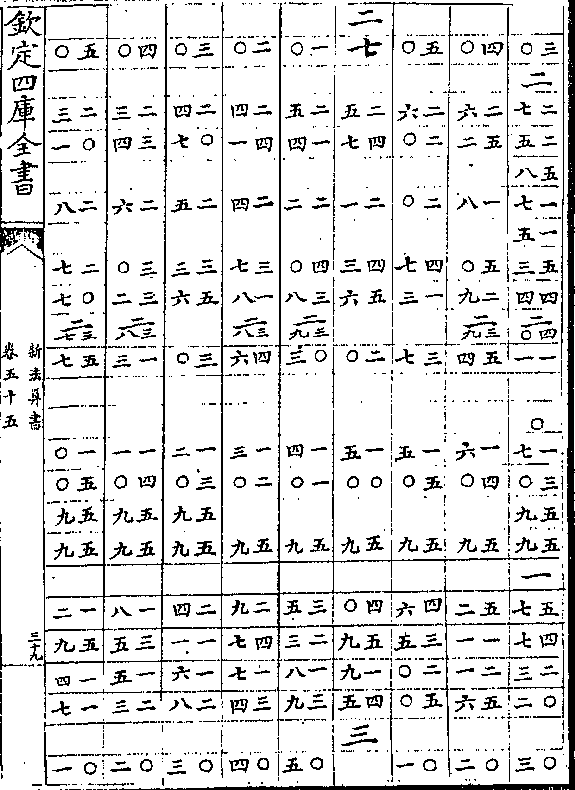 三〇 二 二七 二五 五八 一七 一五 五三 四四 二四〇 一一 〇 一七 三〇 五九 五九 一 五七 四七 二三 〇二 〇三
四〇 二六 五二 一八 五〇 二九 二三九 五四 一六 四〇 五九 五二 一一 二一 五六 〇二
五〇 二六 二〇 二〇 四七 一三 三七 一五 五〇 五九 四六 三五 二〇 五〇 〇一
二七 二五 四七 二一 四三 五六 二〇 一五 〇〇 五九 四〇 五九 一九 四五 三
一〇 二五 四一 二二 四〇 三八 二三九 〇三 一四 一〇 五九 三五 二三 一八 三九 〇五
二〇 二四 四一 二四 三七 一八 二三八 四六 一三 二〇 五九 二九 四七 一七 三四 〇四
三〇 二四 〇七 二五 三三 五六 三〇 一二 三〇 五九 五九 二四 一一 一六 二八 〇三
四〇 二三 三四 二六 三〇 三二 二三八 一三 一一 四〇 五九 五九 一八 三五 一五 二三 〇二
五〇 二三 〇一 二八 二七 〇七 二三七 五七 一〇 五〇 五九 五九 一二 五九 一四 一七 〇一
欽定四庫全書
新法算書
卷五十五
三十九